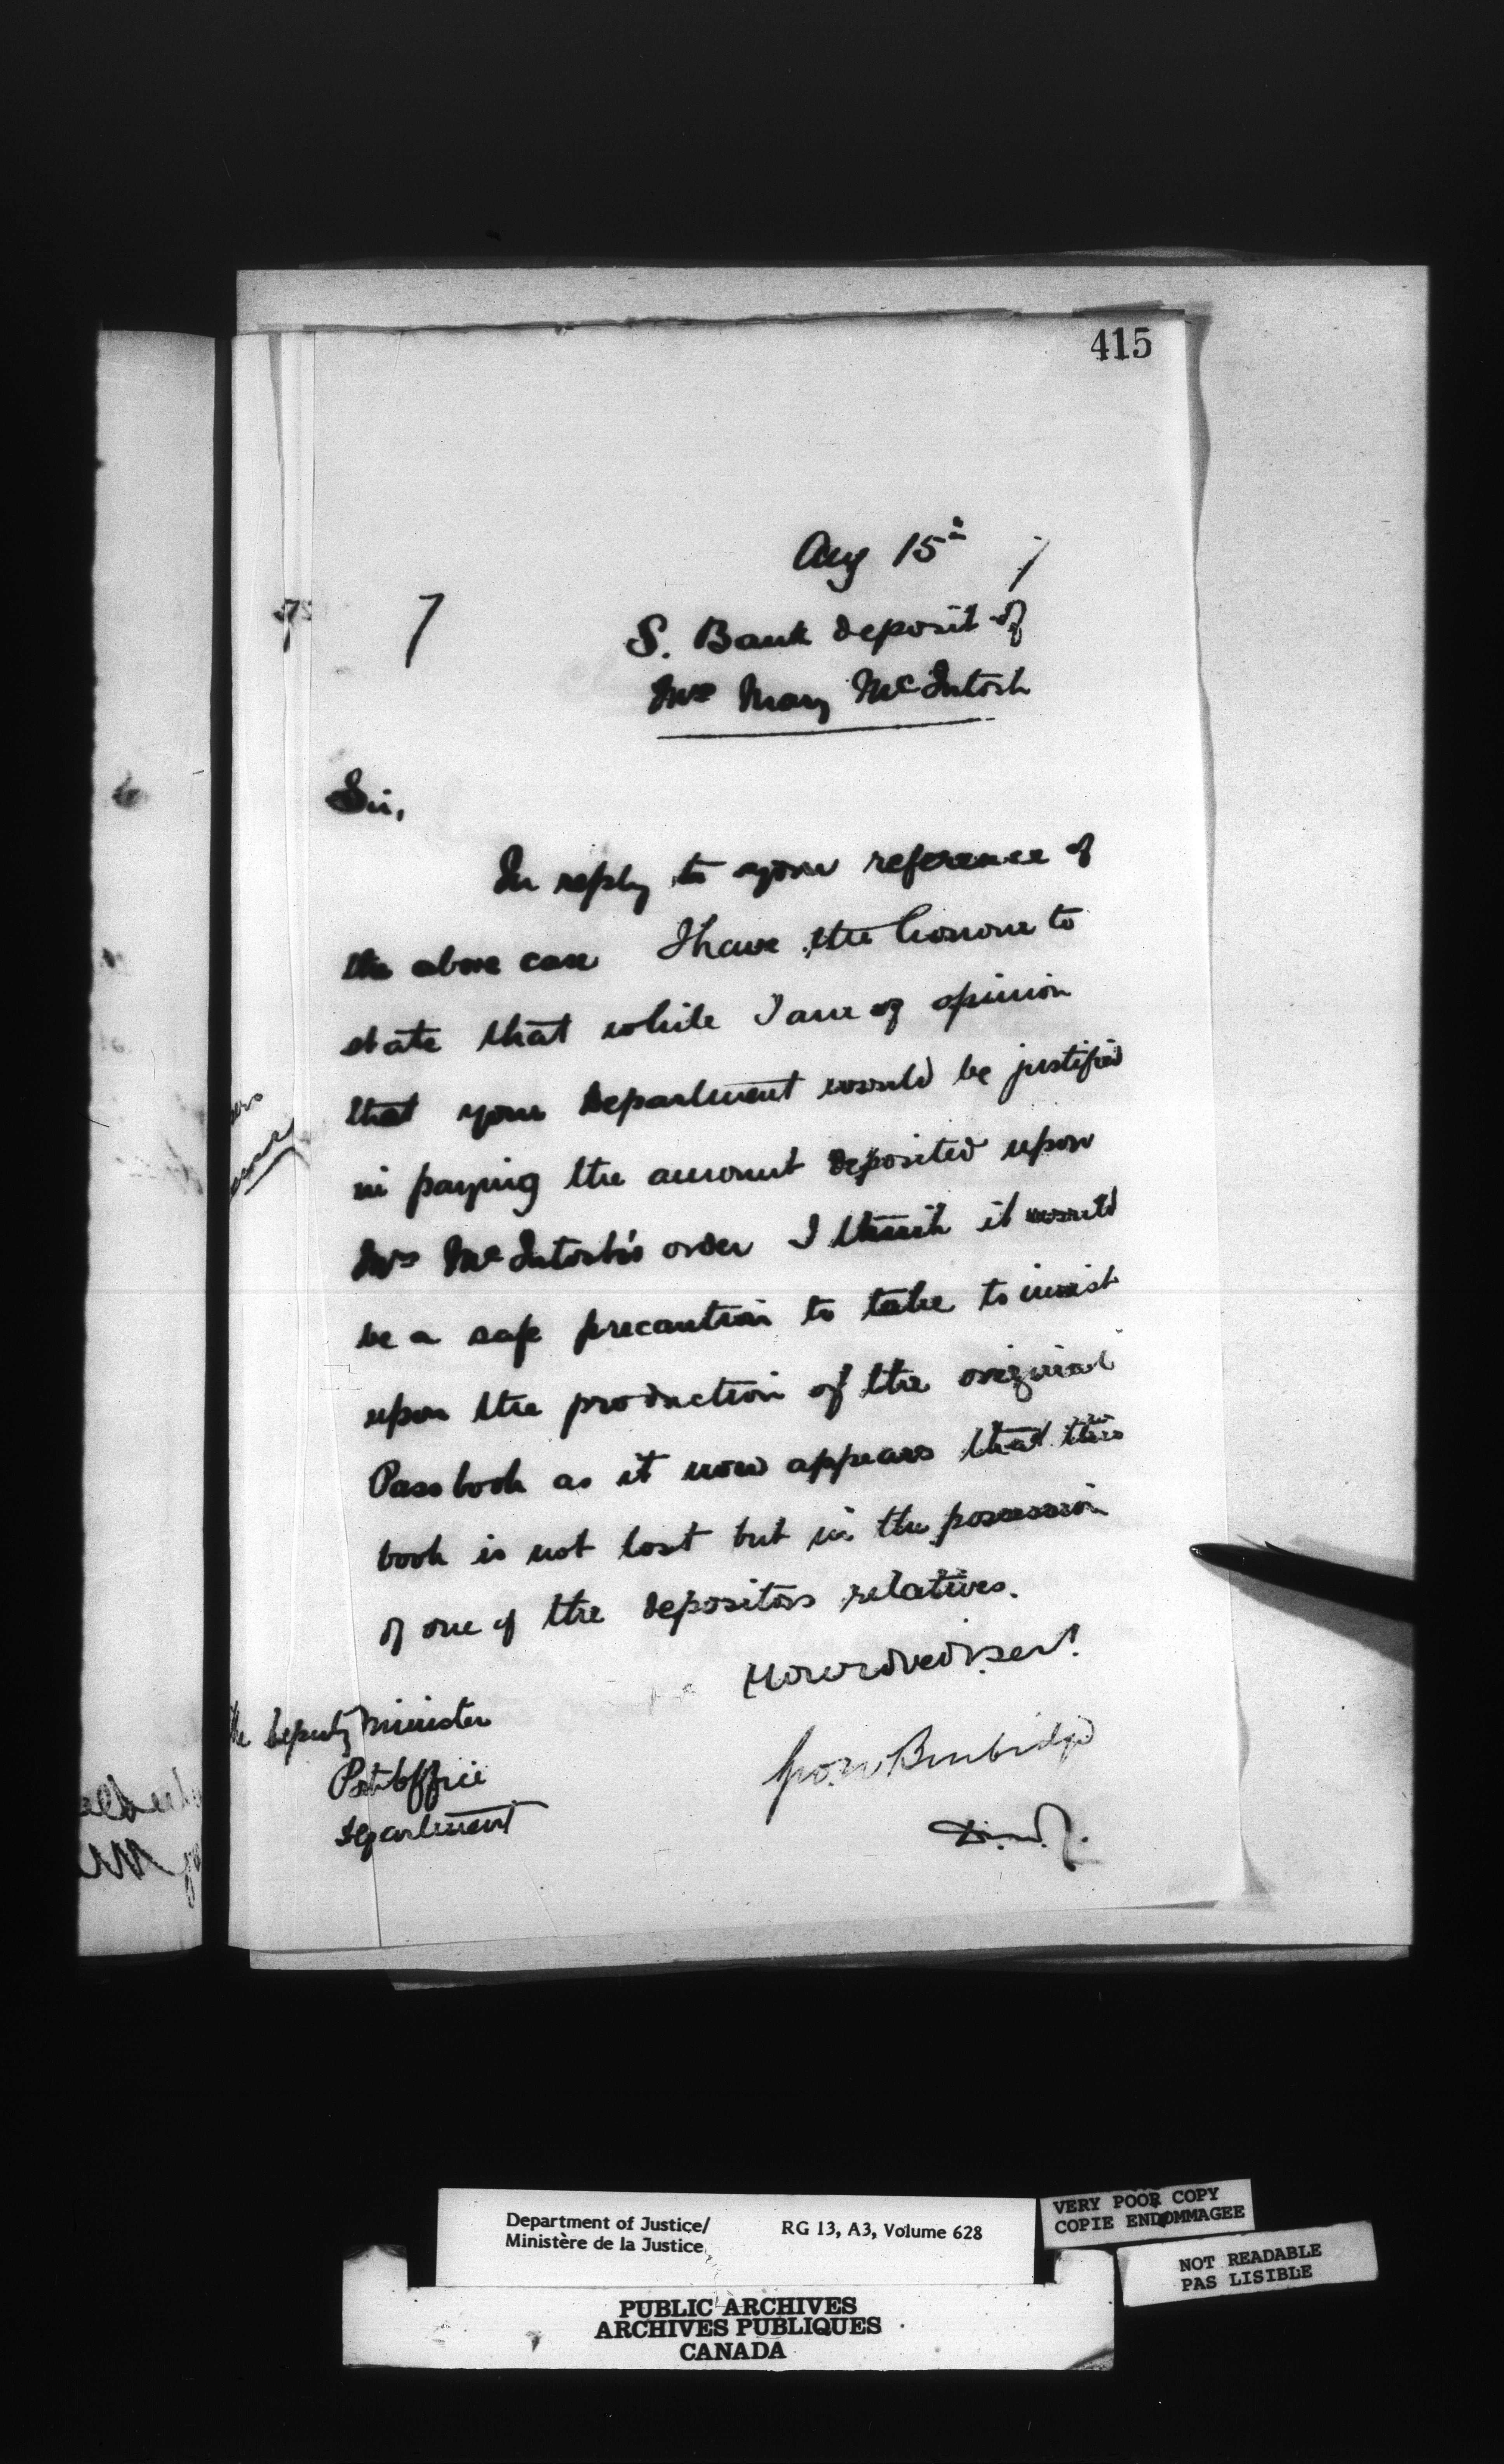 415
Aug 15th
7
S. Bank deposit of
Mrs Mary McIntosh
Sir,
In reply to your reference of
the above case I have the honour to
state that while I am of opinion
that your Department would be justified
in paying the amount deposited upon
Mrs McIntosh's order I think it would
be a safe precaution to take to insist
upon the production of the original
Pass book as it now appears that this
book is not lost but in the possession
of one of the depositors relatives.
Burbidge
D.M.J.
The Deputy Minister
Post Office
Department
Department of Justice/
Ministère de la Justice
RG 13, A3, Volume 628
VERY POOR COPY
COPIE ENDOMMAGEE
NOT READABLE
PAS LISIBLE
PUBLIC ARCHIVES
ARCHIVES PUBLIQUES
CANADA